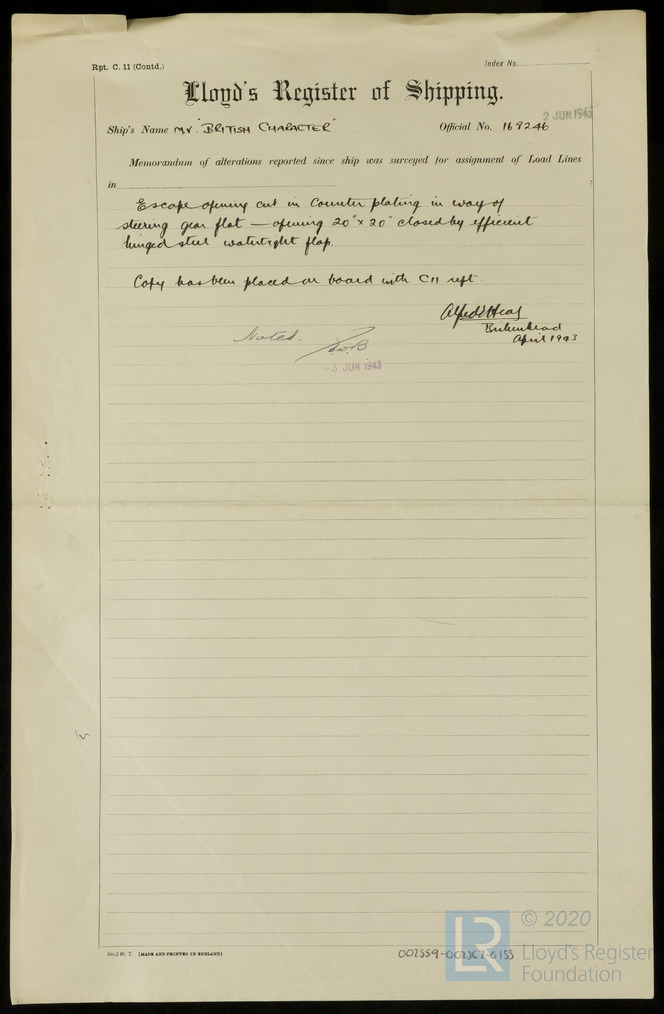 Rpt. C. 11 (Contd.)
Index No.
Lloyd's Register of Shipping.
2 JUN 1943
Ship's Name MV. "BRITISH CHARACTER"
Official No. 168246
Memorandum of alterations reported since ship was surveyed for assignment of Load Lines
in
Escape opening cut in Counter plating in way of
steering gear flat — opening 20" x 20" closed by efficient
hinged steel watertight flap.
Copy has been placed on board with C11 rept.
Birkenhead
April 1943
Noted.
-3 JUN 1943
(MADE AND PRINTED IN ENGLAND)
© 2020
LR
Lloyd's Register
Foundation